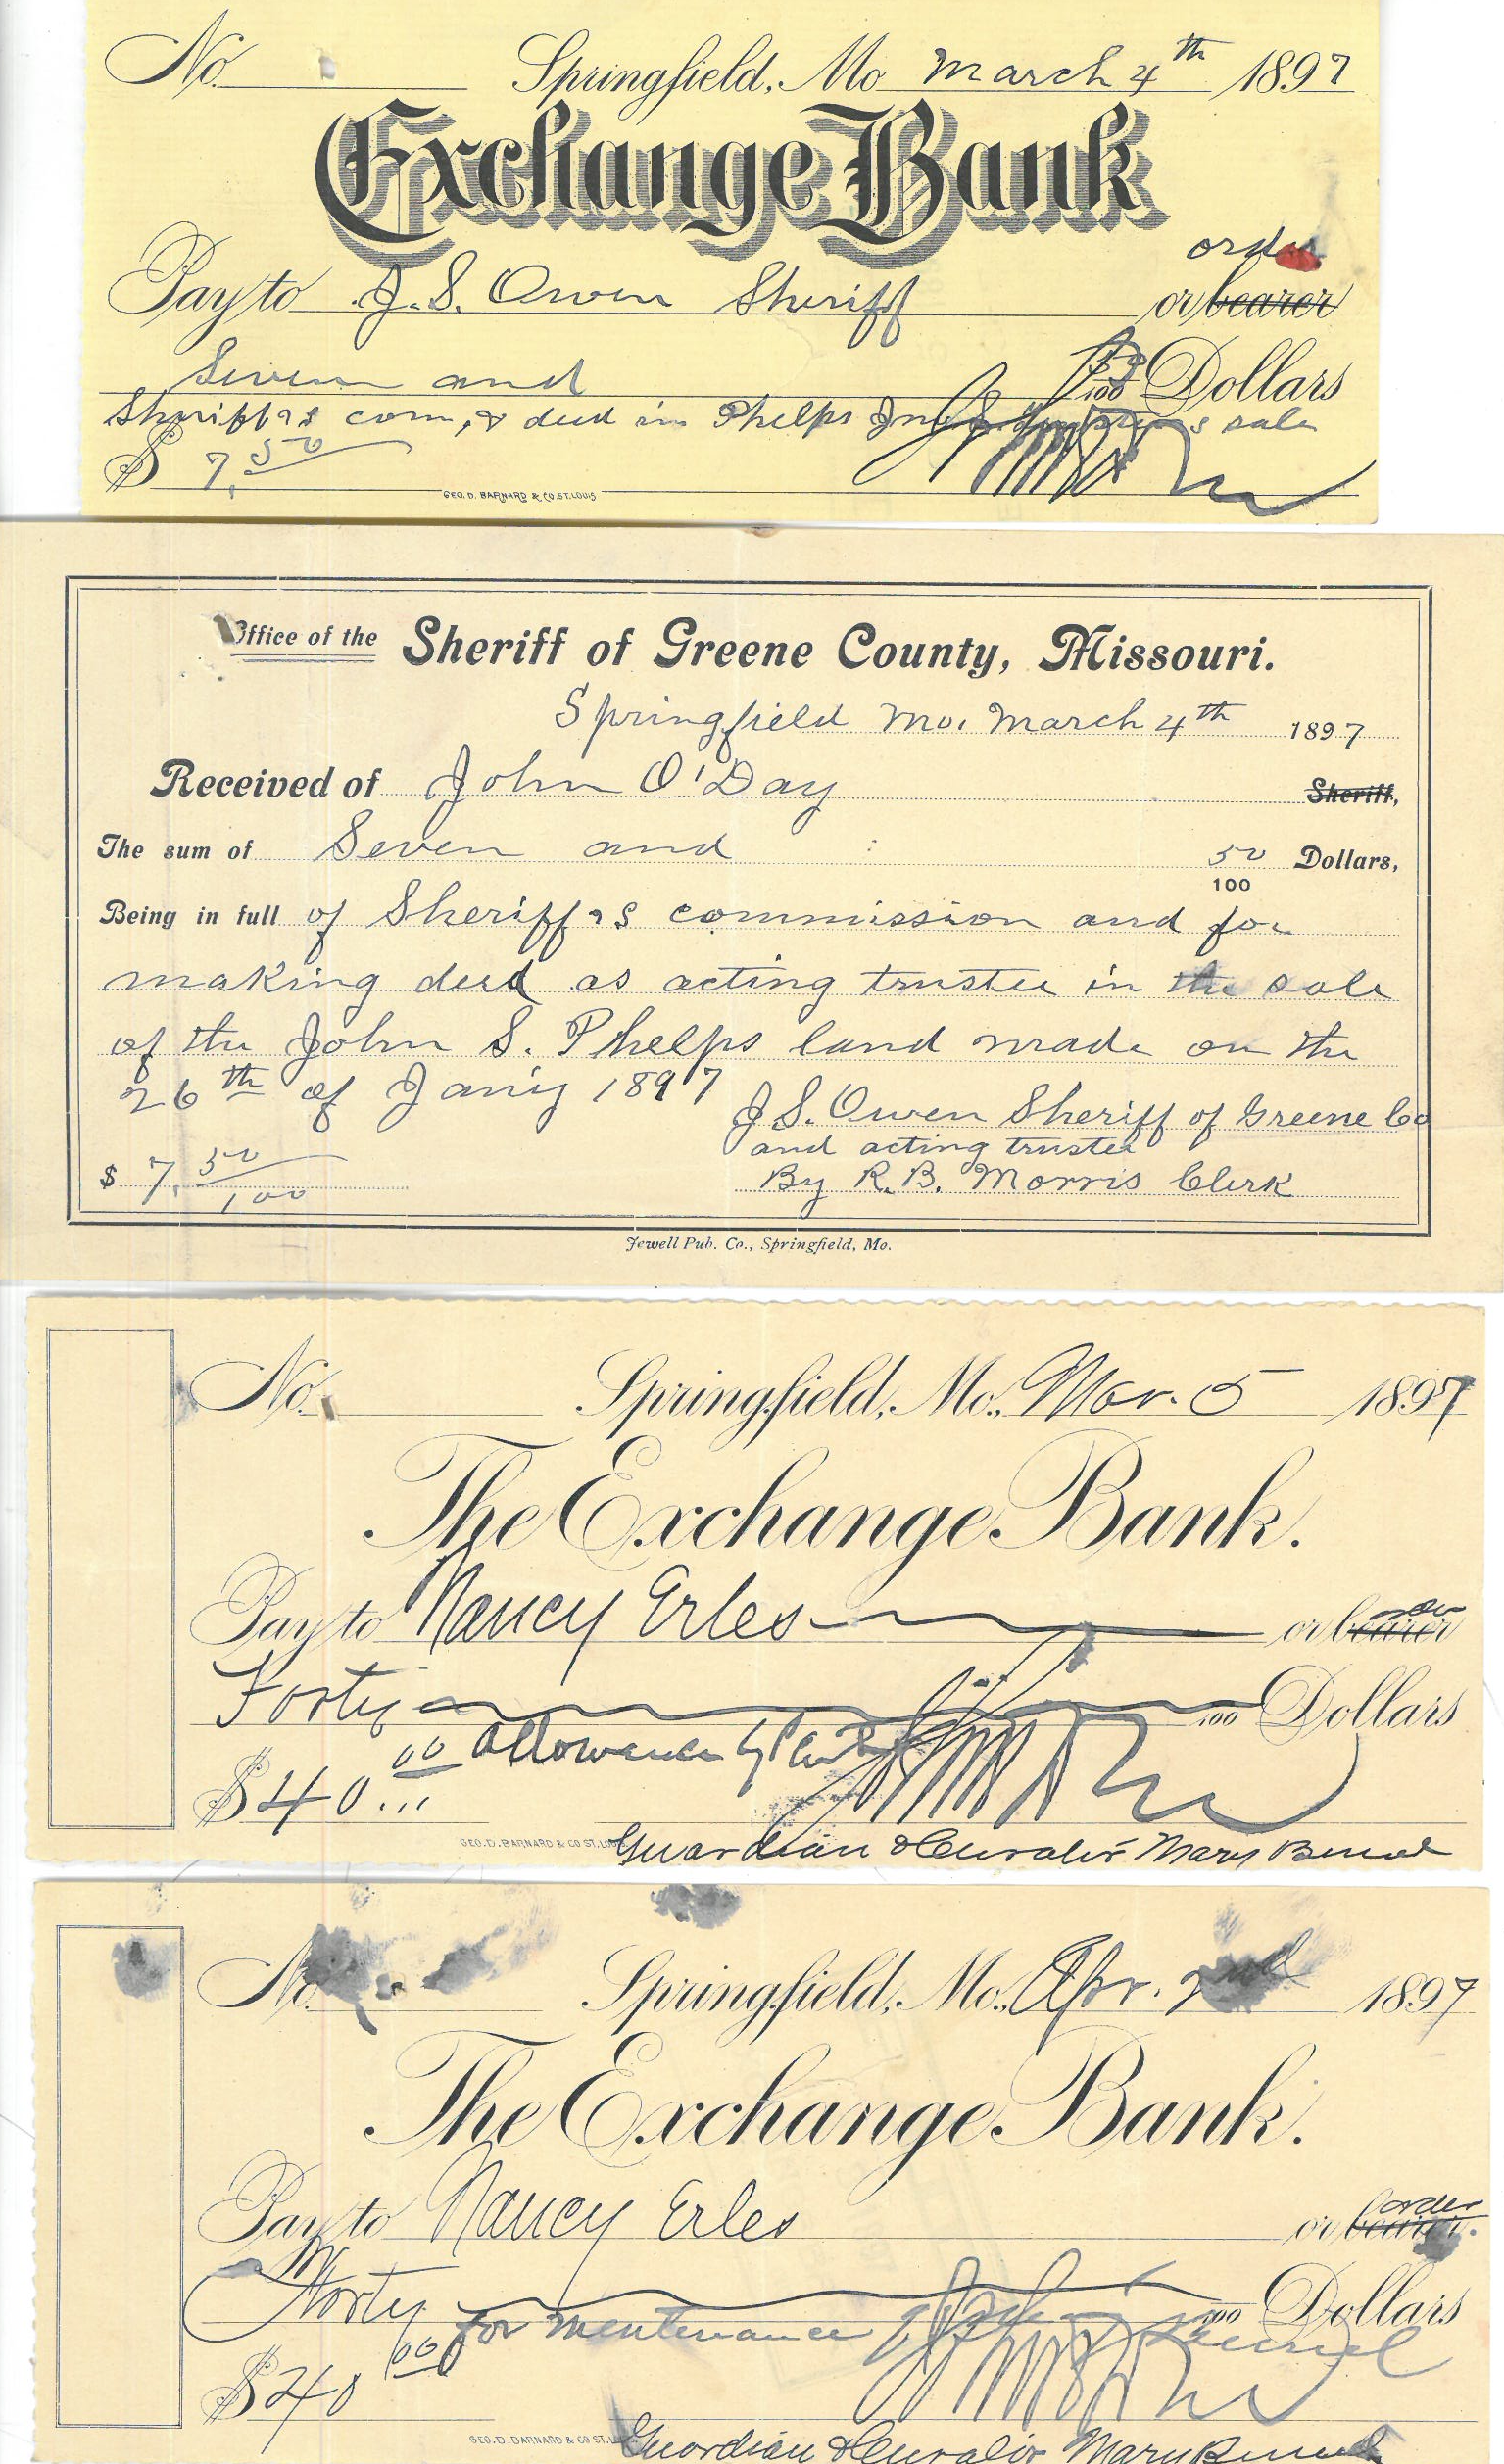 No. Springfield, Mo March 4th 1897
Exchange Bank
order
Pay to J. S. Owen Sheriff or bearer
Seven and 50/100 Dollars
Sheriff's com, & deed in Phelps sale
$ 7.50
GEO. D. BARNARD & CO. ST. LOUIS
Office of the Sheriff of Greene County, Missouri.
Springfield Mo. March 4th 1897
Received of John O'Day Sheriff,
The sum of Seven and 50/100 Dollars,
Being in full of Sheriff's commission and for
making deed as acting trustee in the sale
of the John S. Phelps land made on the
26th of Jan'y 1897
J. S. Owen Sheriff of Greene Co
and acting trustee
$ 7.50/100 By R. B. Morris Clerk
Jewell Pub. Co., Springfield, Mo.
No. Springfield, Mo., Mar. 5 1897
The Exchange Bank.
Pay to Nancy Erles or bearer
Forty /100 Dollars
allowance by
$ 40.00
GEO. D. BARNARD & CO ST. LOUIS
Guardian & Curator Mary
No. Springfield, Mo., Apr. 2nd 1897
The Exchange Bank.
order
Pay to Nancy Erles or bearer.
Forty /100 Dollars
for mentenance of
$ 40 00
GEO. D. BARNARD & CO ST. L
Guardian & Curator Mary